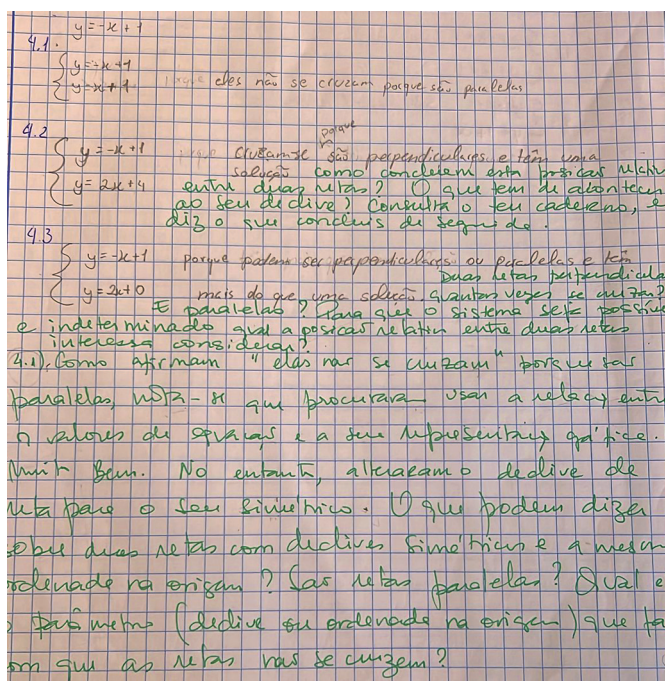 y = -x + 1
4.1.
y = -x + 1
y = x + 1 porque eles não se cruzam porque são paralelas
4.2
porque
y = -x + 1 cruzam-se são perpendiculares e têm uma
solução como concluiem esta posicas relativ
y = 2x + 4 entre duas retas? O que tem de acontecer
ao seu declive? Consulta o teu caderno, e
diz o que concluis de seguida.
4.3
y = -x + 1 porque podem ser perpendiculares ou paralelas e têm
Duas retas perpendicula
y = 2x + 0 mais do que uma solução. quantas vezes se cruzam?
E paralelas? Para que o sistema seja possíve
e indeterminado qual a posicas relativa entre duas retas
interessa considerar?
4.1). Como afirmam "elas nas se cruzam" porque sas
paralelas, nota-se que procuraram usar a relaçaj entre
valores de e a sua gráfica.
Muito Bem. No entanto, alteraram o declive de
reta para o seu simétrico. O que podem dizer
sobre duas retas com declives simétricos e a mesm
ordenada na origem? Sas retas paralelas? Qual e
o parâmetro (declive ou ordenada na origem) que fa
om que as retas nas se cruzem?